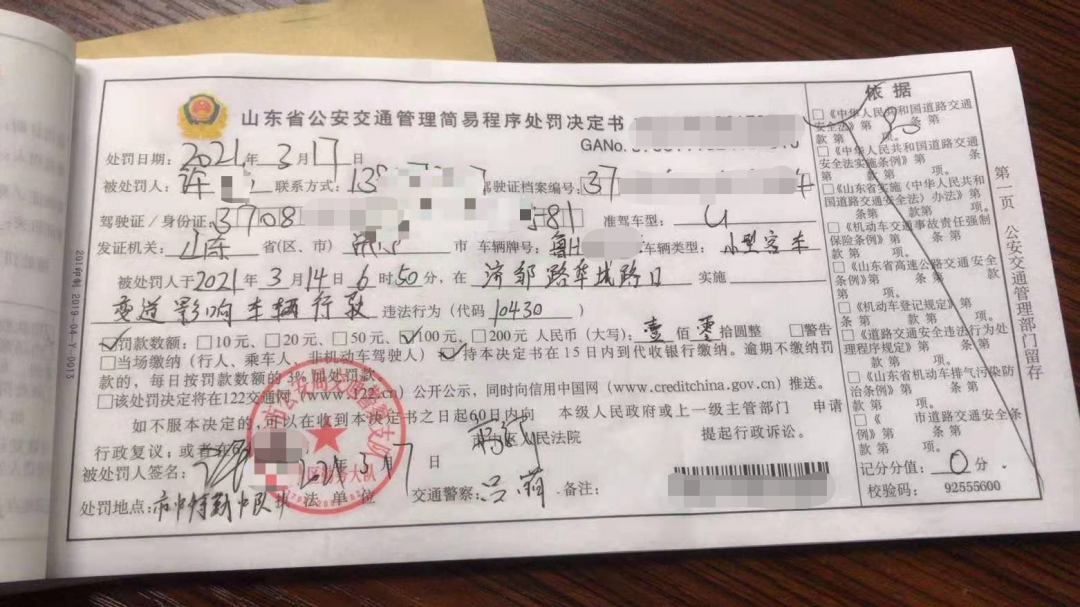 山东省公安交通管理简易程序处罚决定书
GANo.
处罚日期:2021年3月17日
被处罚人:许 联系方式:13 驾驶证档案编号:37
驾驶证/身份证:3708 准驾车型:
发证机关:山东省(区、市) 市 车辆牌号:鲁H 车辆类型:小型客车
被处罚人于2021年3月14日6时50分,在济邹路阜城路口实施
变道影响车辆行驶违法行为(代码10430)
☑罚款数额:□10元、□20元、□50元、☑100元、□200元 人民币(大写):壹佰零拾圆整 □警告
□当场缴纳(行人、乘车人、非机动车驾驶人)☑持本决定书在15日内到代收银行缴纳。逾期不缴纳罚
款的,每日按罚款数额的3%加处罚款
□该处罚决定将在122交通网(www.122.cn)公开公示,同时向信用中国网(www.creditchina.gov.cn)推送。
如不服本决定的,可以在收到本决定书之日起60日内向 本级人民政府或上一级主管部门 申请
行政复议;或者在 区人民法院 提起行政诉讼。
被处罚人签名: 2021年3月17日
处罚地点:市中特勤中队 执法单位 交通警察: 备注:
依据
□《中华人民共和国道路交通
安全法》第90条第
款第 项。
□《中华人民共和国道路交通
安全法实施条例》第 条
第 款第 项。
□《山东省实施〈中华人民共和
国道路交通安全法〉办法》第
条第 款第 项。
□《机动车交通事故责任强制
保险条例》第 条第 款
第 项。
□《山东省高速公路交通安全
条例》第 条第 款
第 项。
□《机动车登记规定》第
条第 款第 项。
□《道路交通安全违法行为处
理程序规定》第 条第
款第 项。
□《山东省机动车排气污染防
治条例》第 条第
款第 项。
□《 市道路交通安全条
例》第 条第
款第 项。
记分分值:0分
校验码: 92555600
第一页 公安交通管理部门留存
2019-04-Y-0013